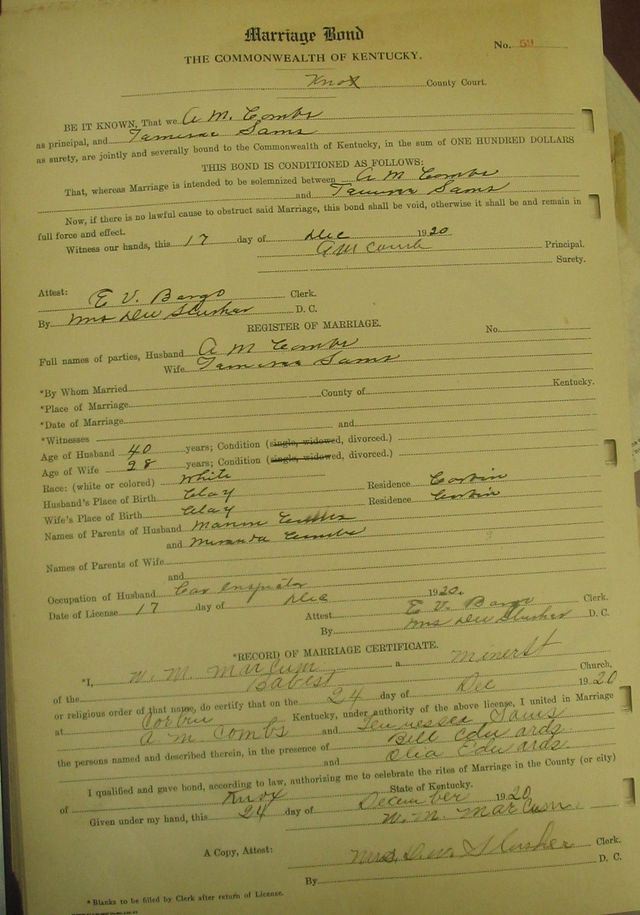 Marriage Bond
No. 59
THE COMMONWEALTH OF KENTUCKY.
Knox County Court.
BE IT KNOWN, That we A. M. Combs
as principal, and Sams
as surety, are jointly and severally bound to the Commonwealth of Kentucky, in the sum of ONE HUNDRED DOLLARS
THIS BOND IS CONDITIONED AS FOLLOWS:
That, whereas Marriage is intended to be solemnized between A M Combs
and Sams
Now, if there is no lawful cause to obstruct said Marriage, this bond shall be void, otherwise it shall be and remain in
full force and effect.
Witness our hands, this 17 day of Dec 1920
A M Combs Principal.
Surety.
Attest: E. V. Bargo Clerk.
By Mrs Dee Slusher D. C.
REGISTER OF MARRIAGE.
No.
Full names of parties, Husband A M Combs
Wife Sams
*By Whom Married
*Place of Marriage County of Kentucky.
*Date of Marriage
*Witnesses and
Age of Husband 40 years; Condition (single, widowed, divorced.)
Age of Wife 28 years; Condition (single, widowed, divorced.)
Race: (white or colored) White
Husband's Place of Birth Clay Residence Corbin
Wife's Place of Birth Clay Residence Corbin
Names of Parents of Husband
and Miranda Combs
Names of Parents of Wife
and
Occupation of Husband Car Inspector
Date of License 17 day of Dec 1920.
Attest: E. V. Bargo Clerk.
By Mrs Dee Slusher D. C.
*RECORD OF MARRIAGE CERTIFICATE.
*I, W. M. Marcum a Minerst
of the Babest Church,
or religious order of that name, do certify that on the 24 day of Dec 1920
at Corbin Kentucky, under authority of the above license, I united in Marriage
A M Combs and Tennessee Sams
the persons named and described therein, in the presence of Bill Edwards
and Olia Edwards
I qualified and gave bond, according to law, authorizing me to celebrate the rites of Marriage in the County (or city)
of Knox State of Kentucky.
Given under my hand, this 24 day of December 1920
W. M. Marcum
A Copy, Attest: Mrs. D. W. Slusher Clerk.
By D. C.
*Blanks to be filled by Clerk after return of License.